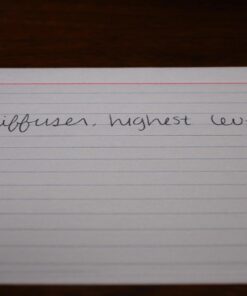 iffuser. highest lev